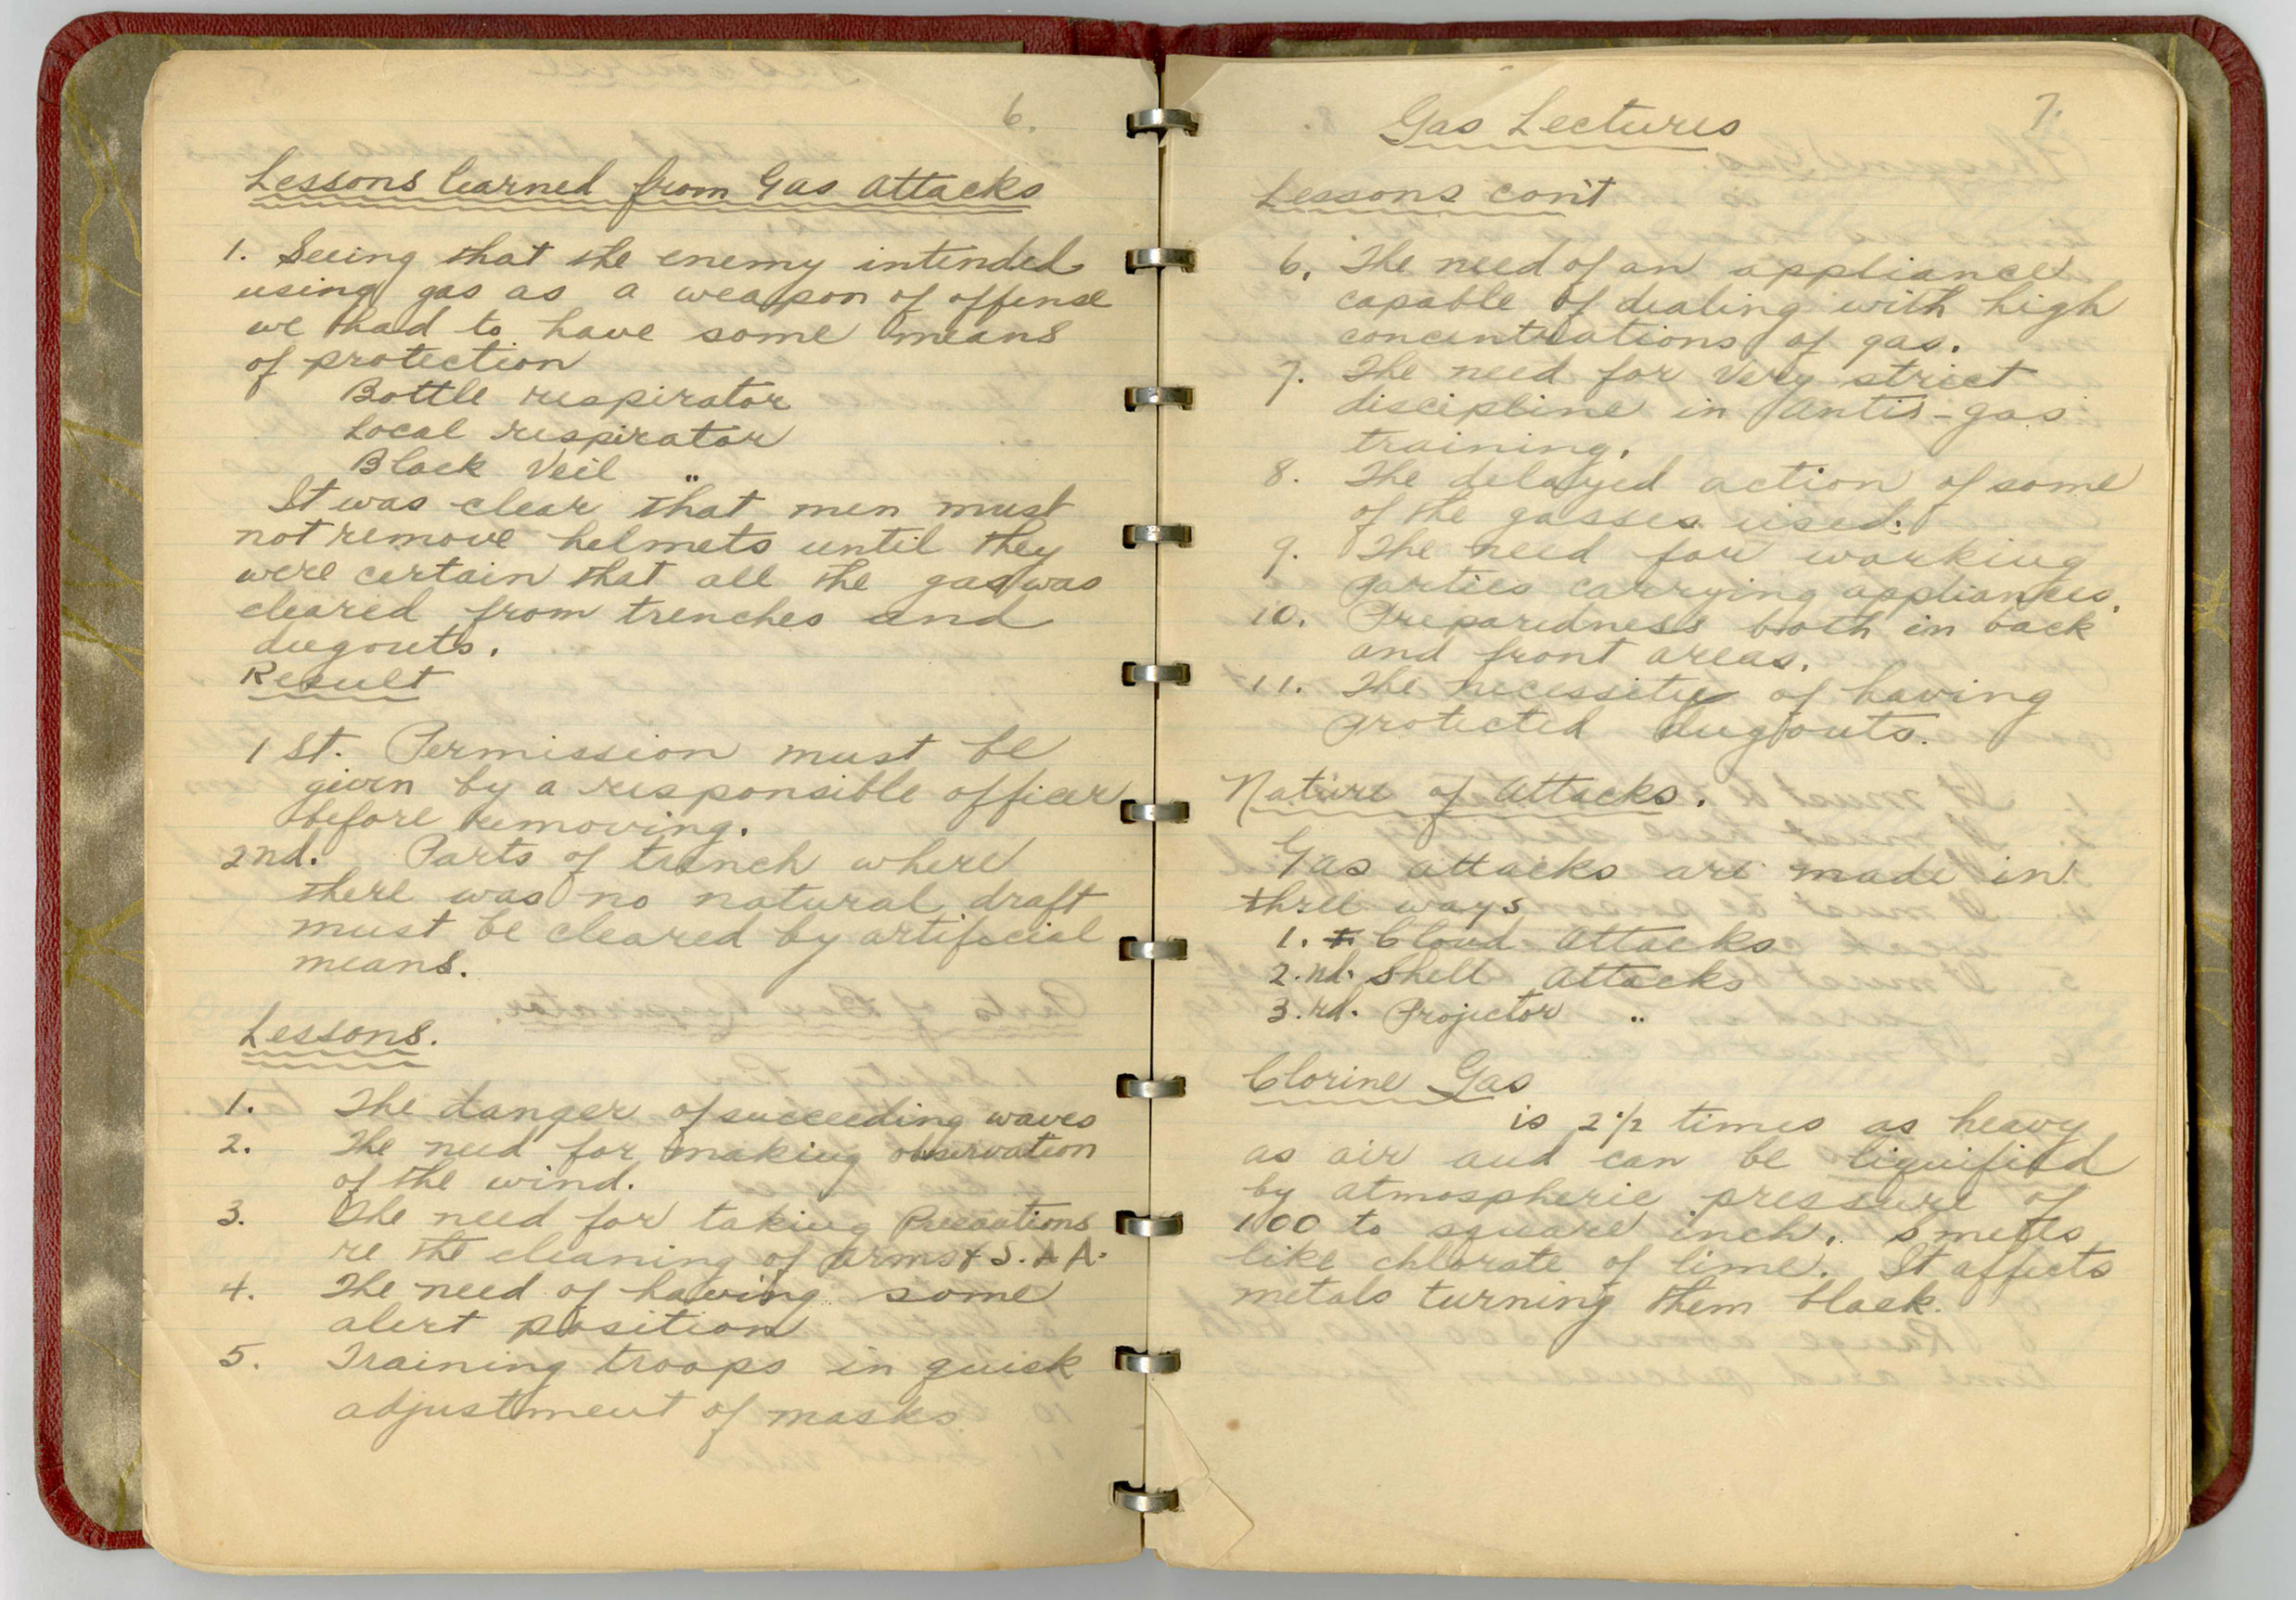 6.
Lessons learned from Gas attacks
1. Seeing that the enemy intended
using gas as a weapon of offense
we had to have some means
of protection
Bottle respirator
Local respirator
Black Veil "
It was clear that men must
not remove helmets until they
were certain that all the gas was
cleared from trenches and
dugouts.
Result
1 st. Permission must be
given by a responsible officer
before removing.
2nd. Parts of trench where
there was no natural draft
must be cleared by artificial
means.
Lessons.
1. The danger of succeeding waves
2. The need for making observation
of the wind.
3. The need for taking Precautions
re the cleaning of arms & S.A.A.
4. The need of having some
alert position
5. Training troops in quick
adjustment of masks
7.
Gas Lectures
Lessons con't
6. The need of an appliance
capable of dealing with high
concentrations of gas.
7. The need for very strict
discipline in antis-gas
training.
8. The delayed action of some
of the gasses used.
9. The need for working
parties carrying appliances.
10. Preparedness both in back
and front areas.
11. The necessity of having
protected dugouts.
Nature of attacks.
Gas attacks are made in
three ways
1. Cloud attacks
2.nd. Shell attacks
3.rd. Projector "
Clorine Gas
is 2 1/2 times as heavy
as air and can be liquified
by atmospheric pressure of
100 to square inch. Smells
like chlorate of lime. It affects
metals turning them black.